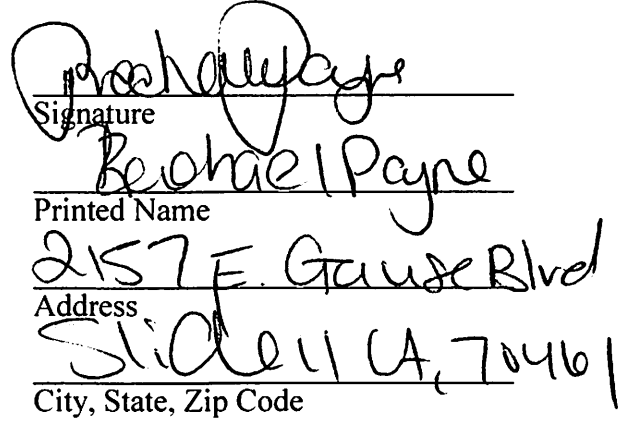 Rachael Payne
Signature
Rachael Payne
Printed Name
2157 E. Gause Blvd
Address
Slidell LA, 70461
City, State, Zip Code